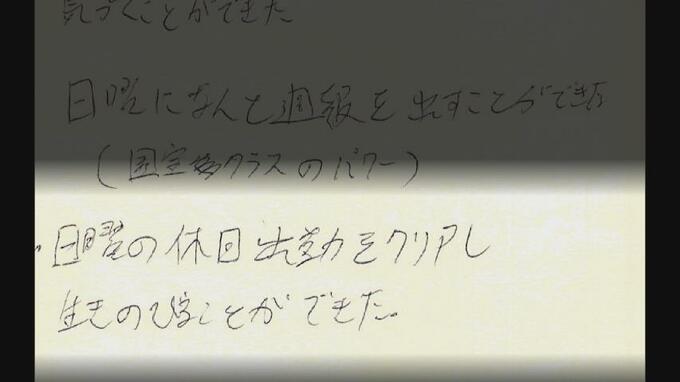 気づくことができた
日曜になんと週報を出すことができた
(国宝クラスのパワー)
・日曜の休日出勤をクリアし
生きのびることができた。